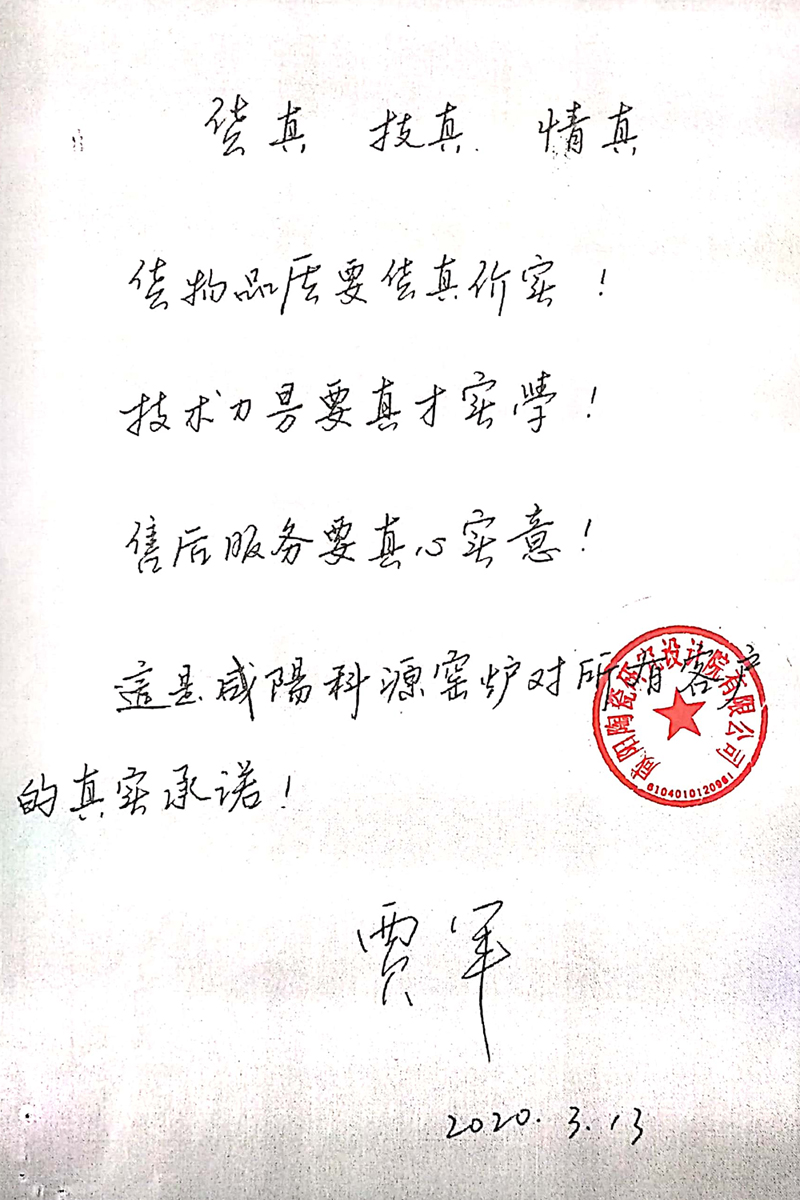 货真 技真 情真
货物品质要货真价实！
技术力量要真才实學！
售后服务要真心实意！
這是咸陽科源窑炉对所有客户
的真实承诺！
咸阳陶瓷研究设计院有限公司
6104010120961
贾军
2020.3.13